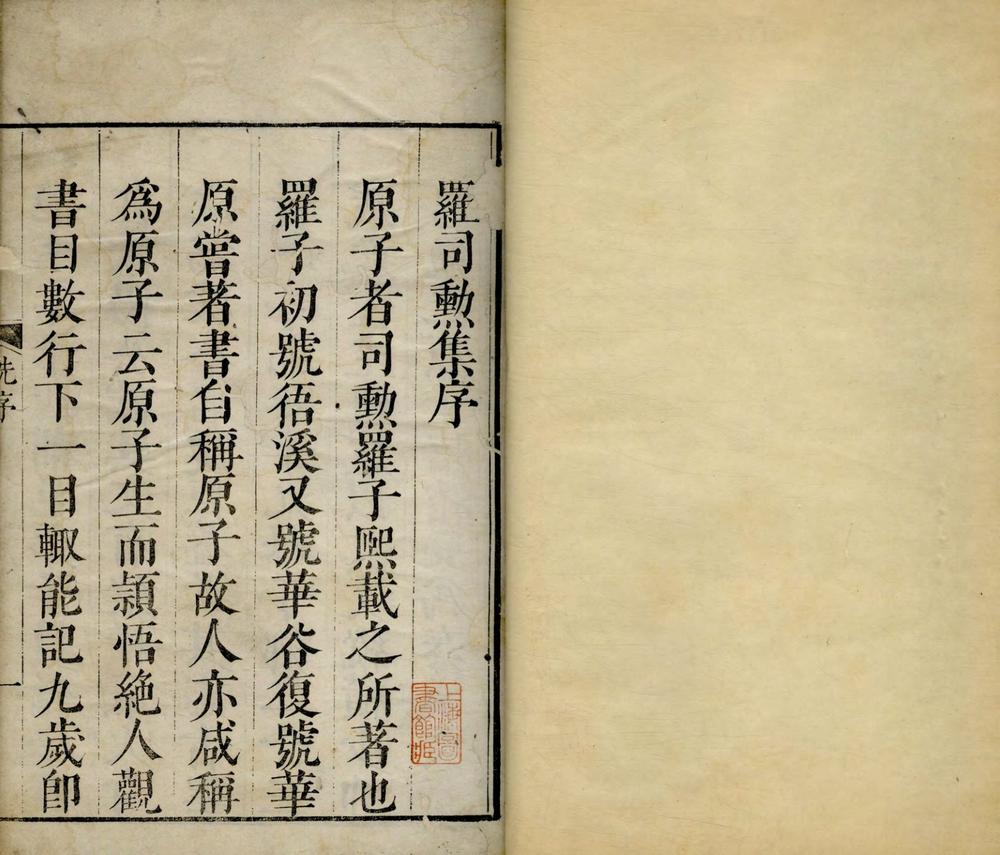 羅司勳集序
原子者司勳羅子熙載之所著也
羅子初號徳溪又號華谷復號華
原嘗著書自稱原子故人亦咸稱
為原子云原子生而頴悟絶人觀
書目數行下一目輙能記九歲卽
先序
一
上海圖
書館